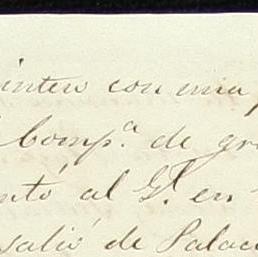 inten con una
Comp.ª de gra
ntó al G.l en
salió de Palac